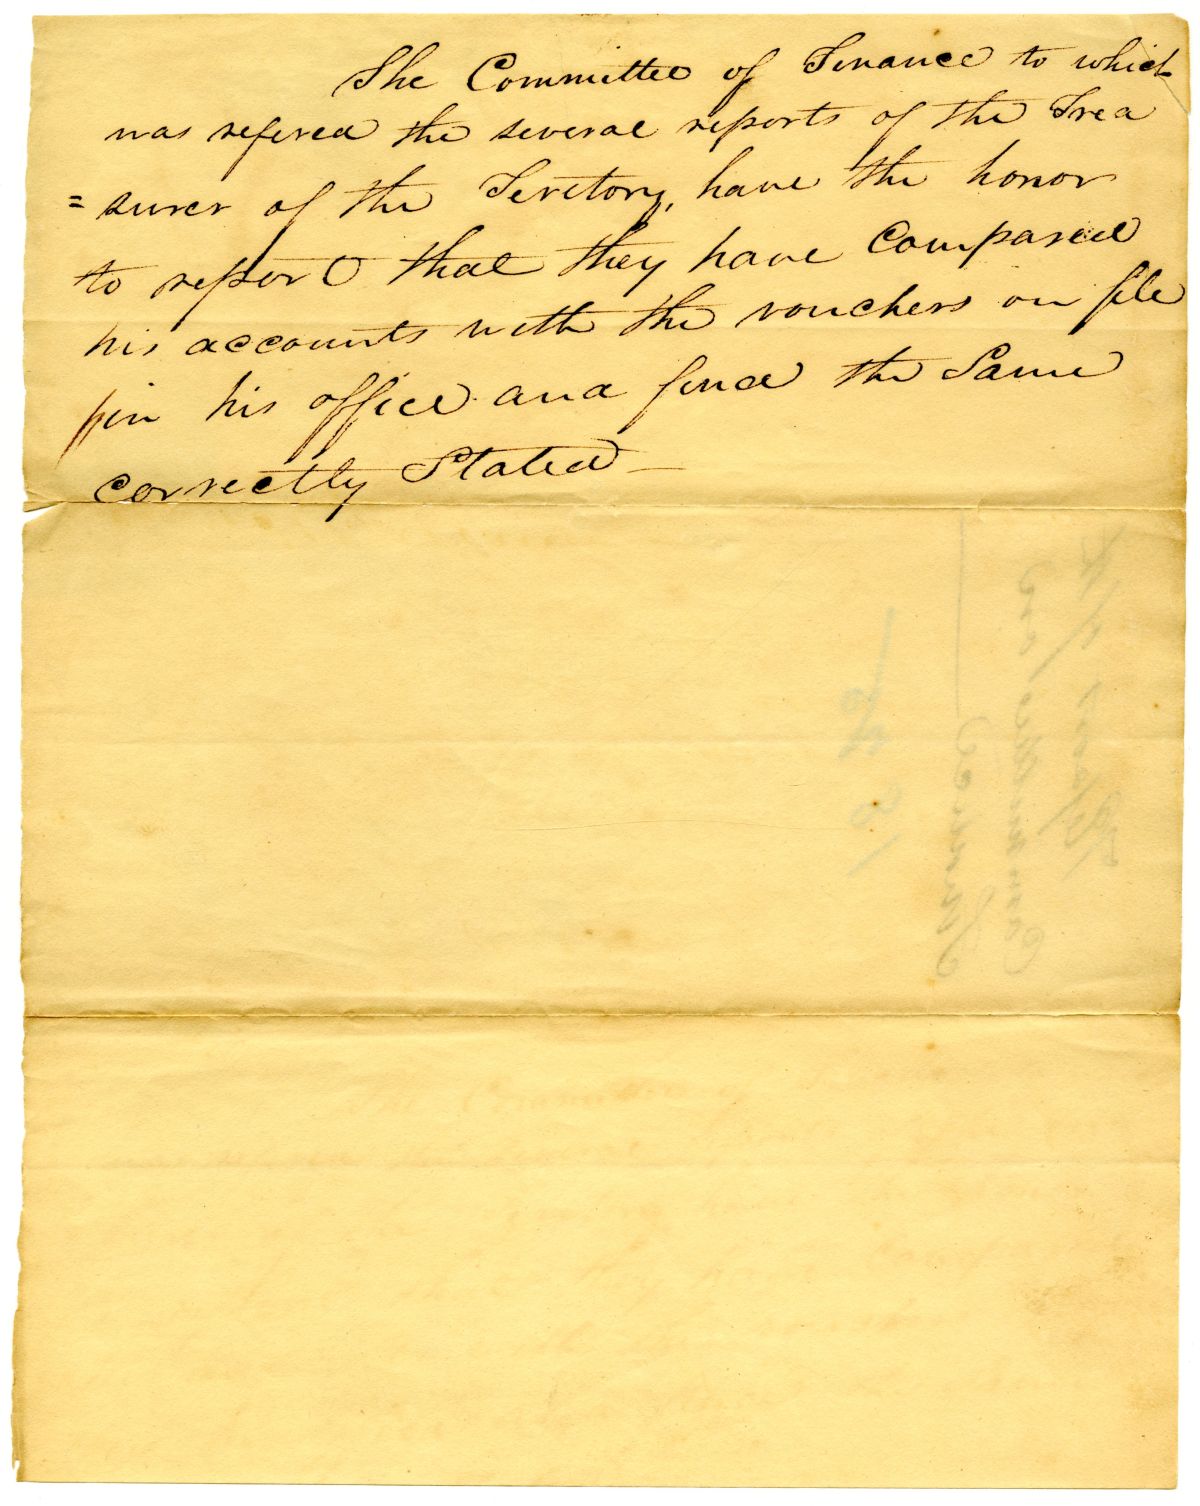 The Committee of Finance to which
was refered the several reports of the Trea
=surer of the Teritory, have the honor
to report that they have Compared
his accounts with the vouchers on file
in his office and find the Same
correctly Stated —